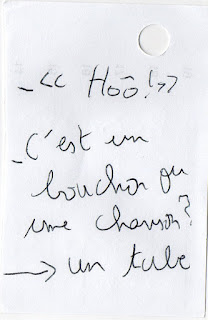 _ << Hoô!>>
_ C'est un
bouchon ou
une chanson?
→ un tube